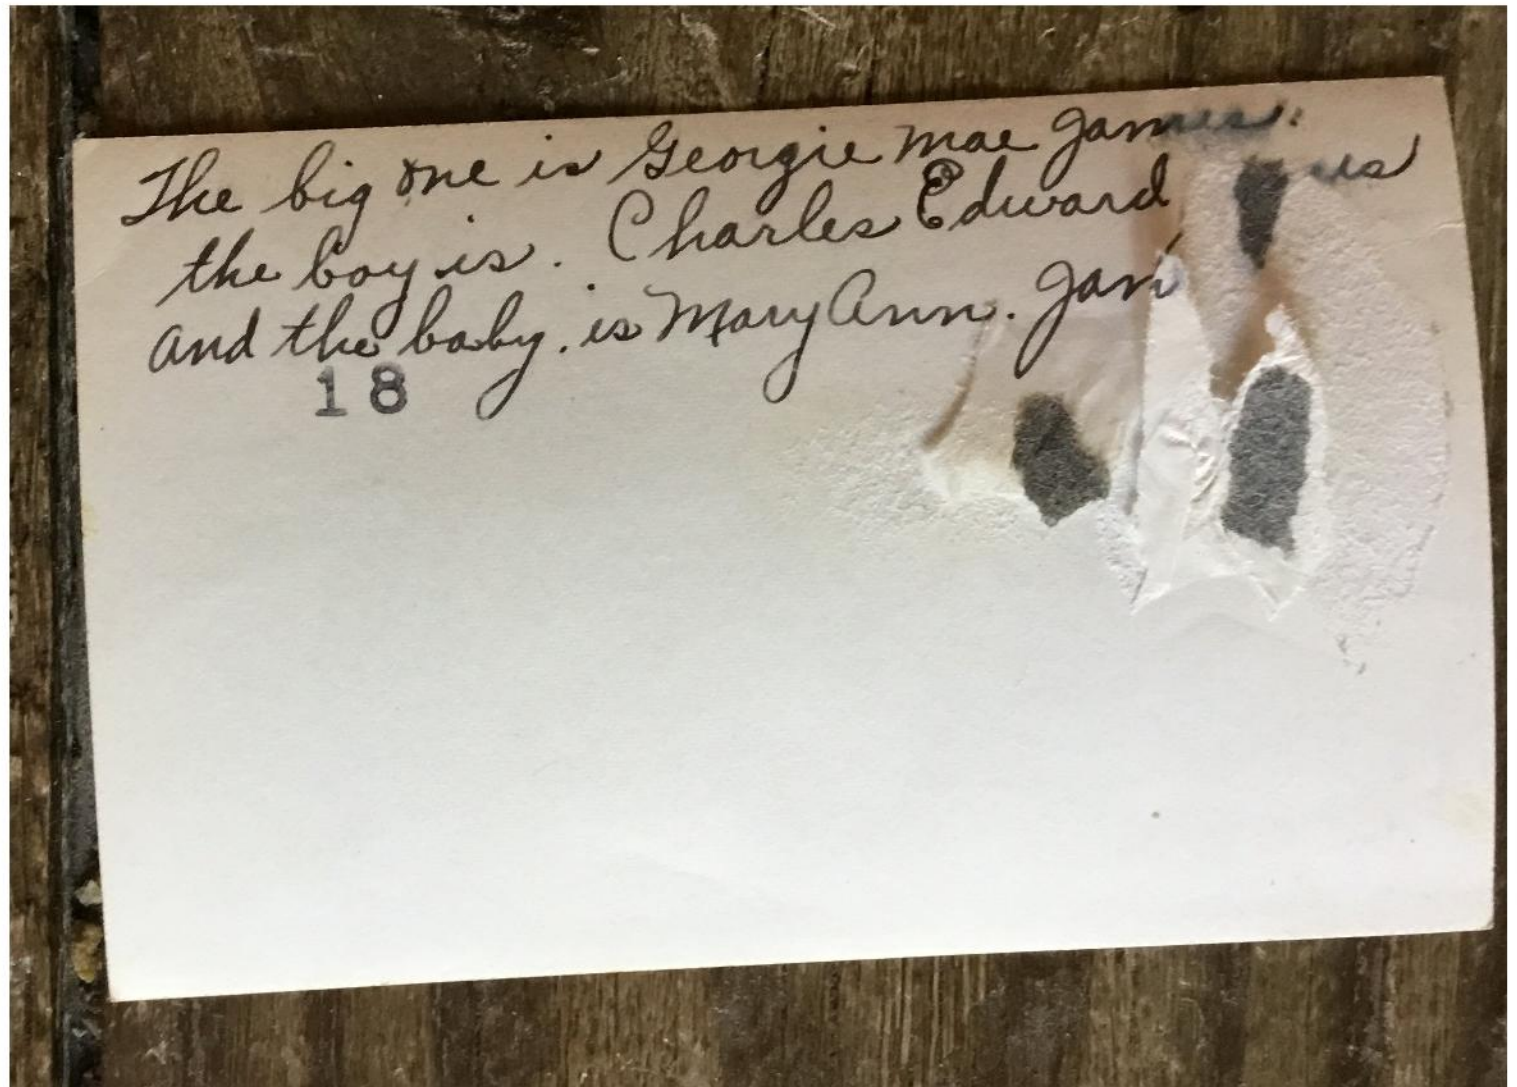 The big one is Georgie Mae James.
the boy is. Charles Edward
and the baby. is Mary Ann.
18